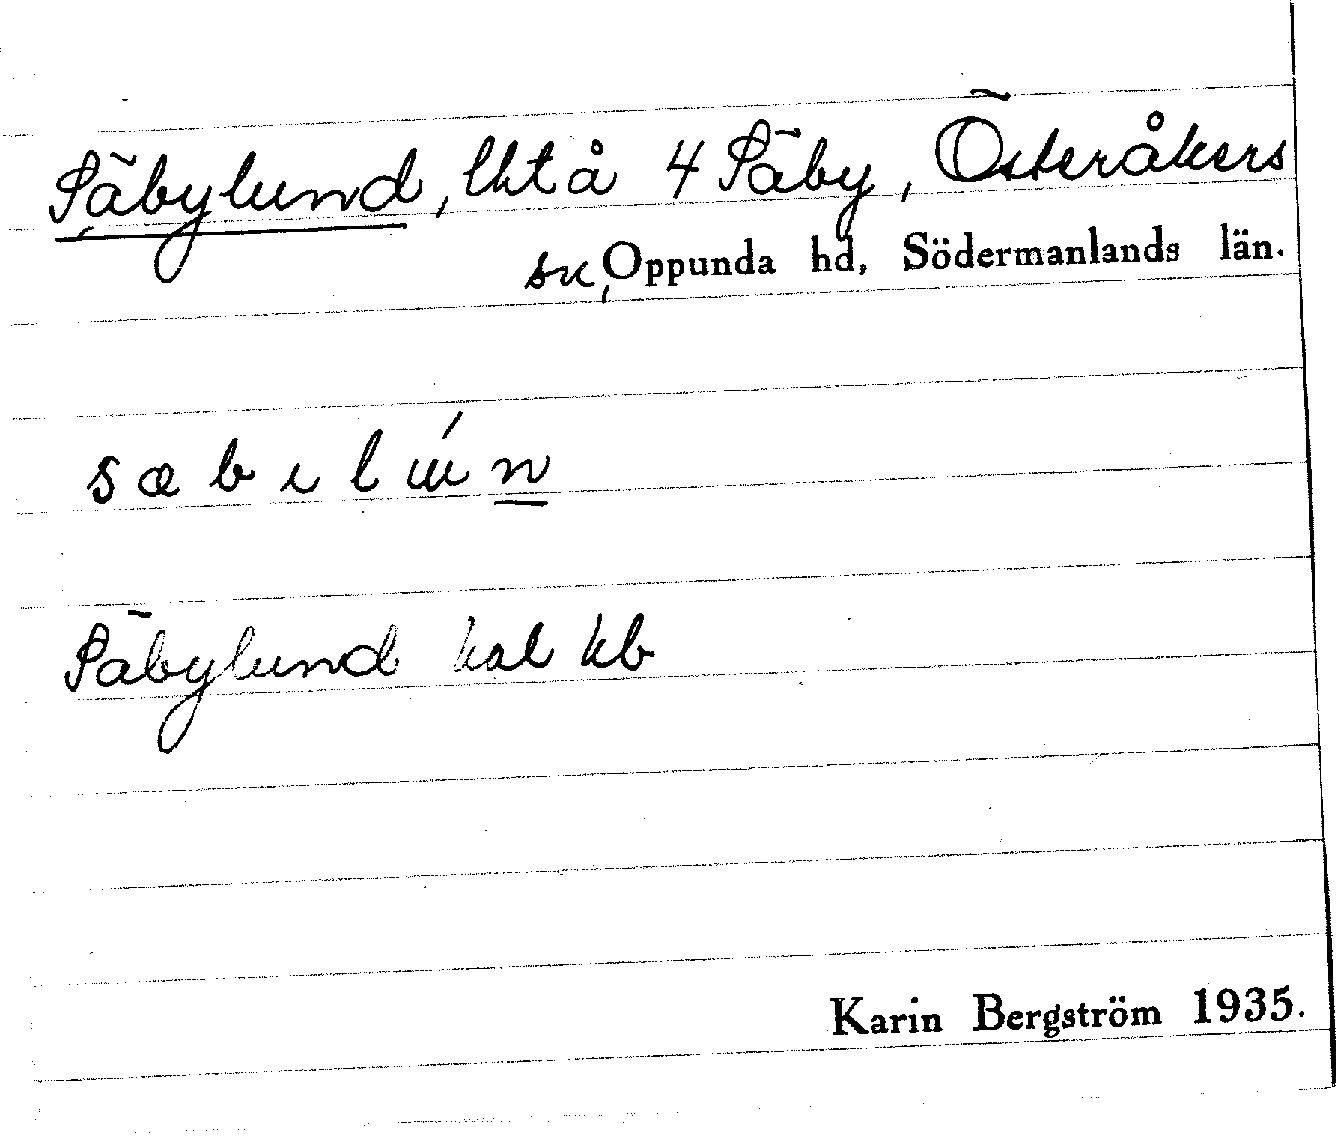 Säbylund, lht å 4 Säby, Österåkers
sn, Oppunda hd, Södermanlands län.
s æ b ι l ɯ́ n
Säbylund hal kb
Karin Bergström 1935.